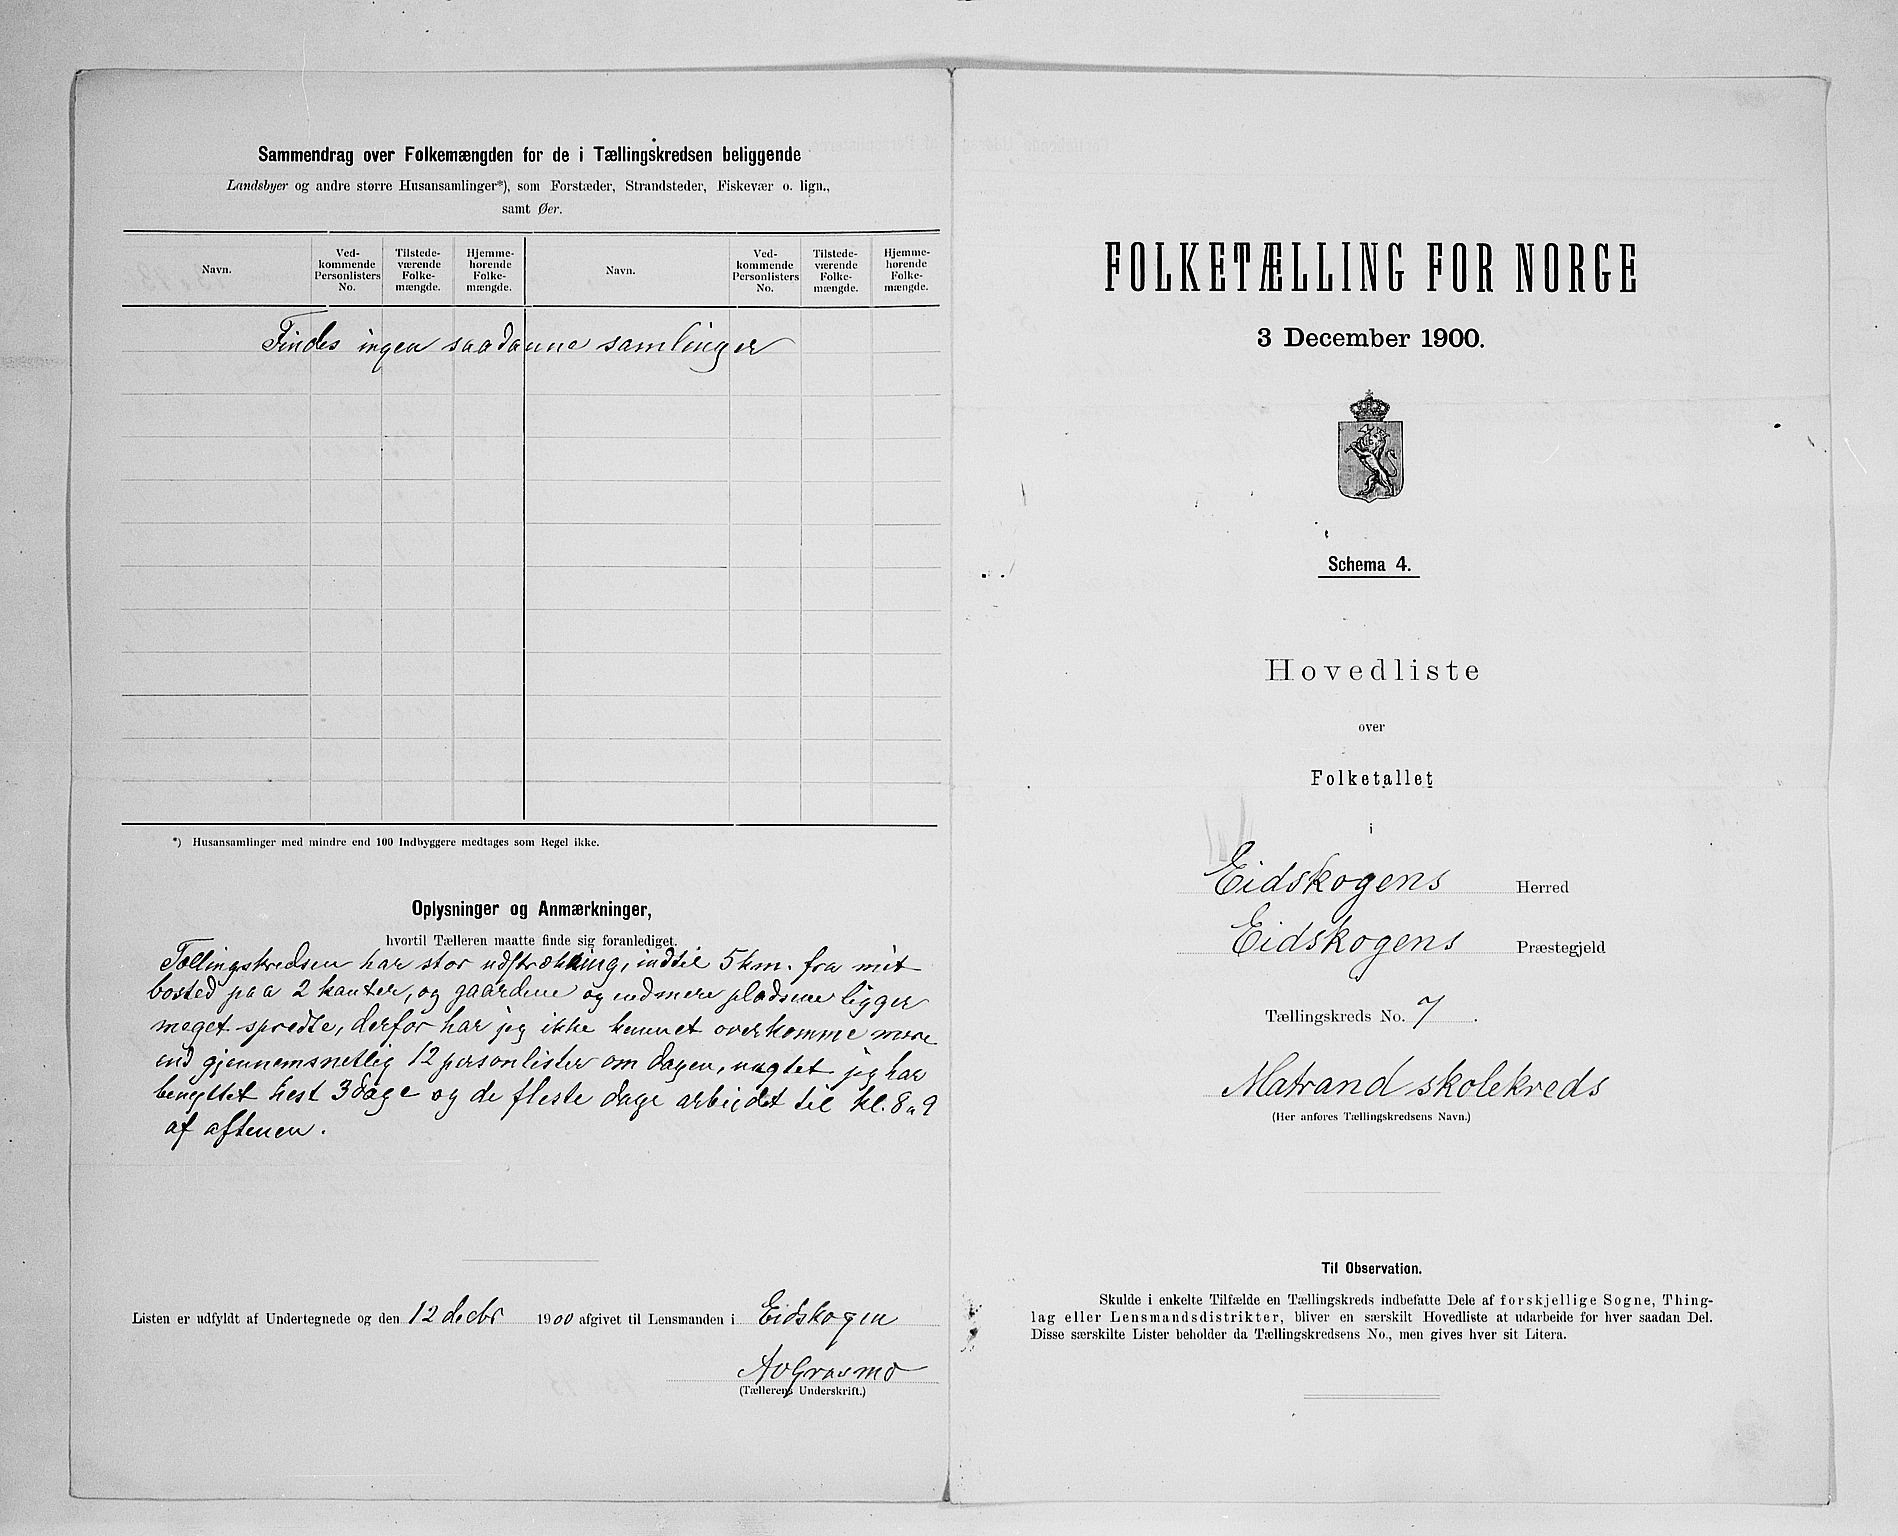 Sammendrag over Folkemængden for de i Tællingskredsen beliggende
Landsbyer og andre større Husansamlinger*), som Forstæder, Strandsteder, Fiskevær o. lign.,
samt Øer.
Navn.
Ved-
kommende
Personlisters
No.
Tilstede-
værende
Folke-
mængde.
Hjemme-
hørende
Folke-
mængde.
Navn.
Ved-
kommende
Personlisters
No.
Tilstede-
værende
Folke-
mængde.
Hjemme-
hørende
Folke-
mængde.
Findes ingen saadanne samlinger
*) Husansamlinger med mindre end 100 Indbyggere medtages som Regel ikke.
Oplysninger og Anmærkninger,
hvortil Tælleren maatte finde sig foranlediget.
Tællingskredsen har stor udstrækning, indtil 5 km. fra mit
bosted paa 2 kanter, og gaardene og endmere pladsene ligger
meget spredte, derfor har jeg ikke kunnet overkomme mere
end gjennemsnetlig 12 personlister om dagen, uagtet jeg har
benyttet hest 3 dage og de fleste dage arbeidet til kl. 8 a 9
af aftenen.
Listen er udfyldt af Undertegnede og den 12 decbr 1900 afgivet til Lensmanden i Eidskogen
A O Grasmo
(Tællerens Underskrift.)
FOLKETÆLLING FOR NORGE
3 December 1900.
Schema 4.
Hovedliste
over
Folketallet
i
Eidskogens Herred
Eidskogens Præstegjeld
Tællingskreds No. 7.
Matrand skolekreds
(Her anføres Tællingskredsens Navn.)
Til Observation.
Skulde i enkelte Tilfælde en Tællingskreds indbefatte Dele af forskjellige Sogne, Thing-
lag eller Lensmandsdistrikter, bliver en særskilt Hovedliste at udarbeide for hver saadan Del.
Disse særskilte Lister beholder da Tællingskredsens No., men gives hver sit Litera.